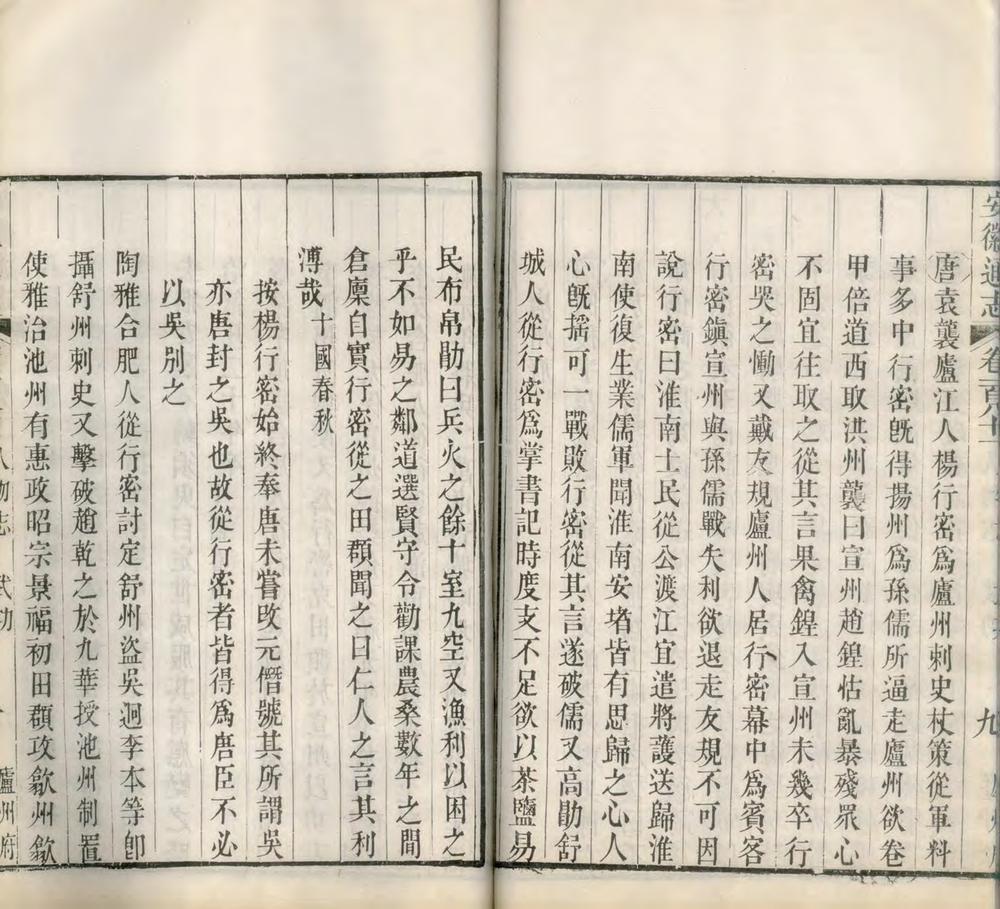 安徽通志 卷二百 九
唐袁襲廬江人楊行密爲廬州刺史杖策從軍料
事多中行密旣得揚州爲孫儒所逼走廬州欲卷
甲倍道西取洪州襲曰宣州趙鍠怙亂暴殘眾心
不固宜往取之從其言果禽鍠入宣州未幾卒行
密哭之慟又戴友規廬州人居行密幕中爲賓客
行密鎮宣州與孫儒戰失利欲退走友規不可因
說行密曰淮南士民從公渡江宜遣將護送歸淮
南使復生業儒軍聞淮南安堵皆有思歸之心人
心旣搖可一戰敗行密從其言遂破儒又高勖舒
城人從行密爲掌書記時度支不足欲以茶鹽易
民布帛勖曰兵火之餘十室九空又漁利以困之
乎不如易之鄰道選賢守令勸課農桑數年之間
倉廩自實行密從之田頵聞之曰仁人之言其利
溥哉十國春秋
按楊行密始終奉唐未嘗改元僭號其所謂吳
亦唐封之吳也故從行密者皆得爲唐臣不必
以吳別之
陶雅合肥人從行密討定舒州盜吳迥李本等卽
攝舒州刺史又擊破趙乾之於九華授池州制置
使雅治池州有惠政昭宗景福初田頵攻歙州歙
人物志 武功 廬州府